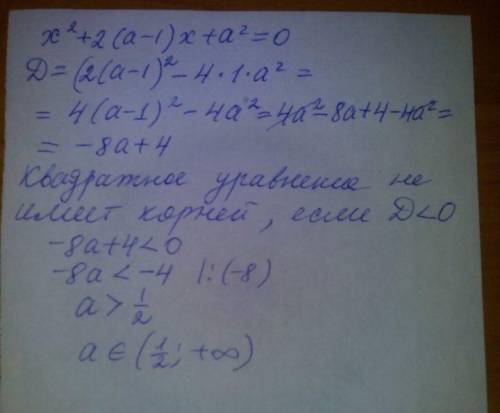 x²+2(a-1)x+a²=0
D=(2(a-1)²-4·1·a²=
=4(a-1)²-4a²=4a²-8a+4-4a²=
=-8a+4
Квадратное уравнение не
имеет корней, если D<0
-8a+4<0
-8a<-4 |:(-8)
a>1/2
a∈(1/2; +∞)